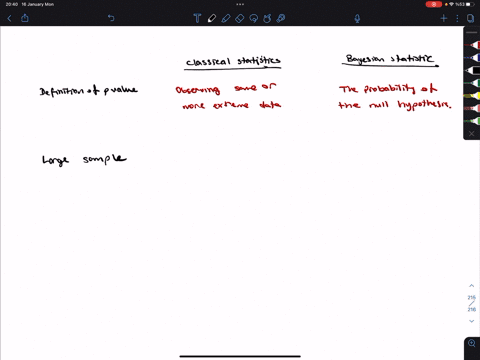 20:40 16 January Mon
%53
classical statistics
Bayesian statistic.
Definition of p value
Observing same or
more extreme data
The probability of
the null hypothesis.
Large sample
215
216